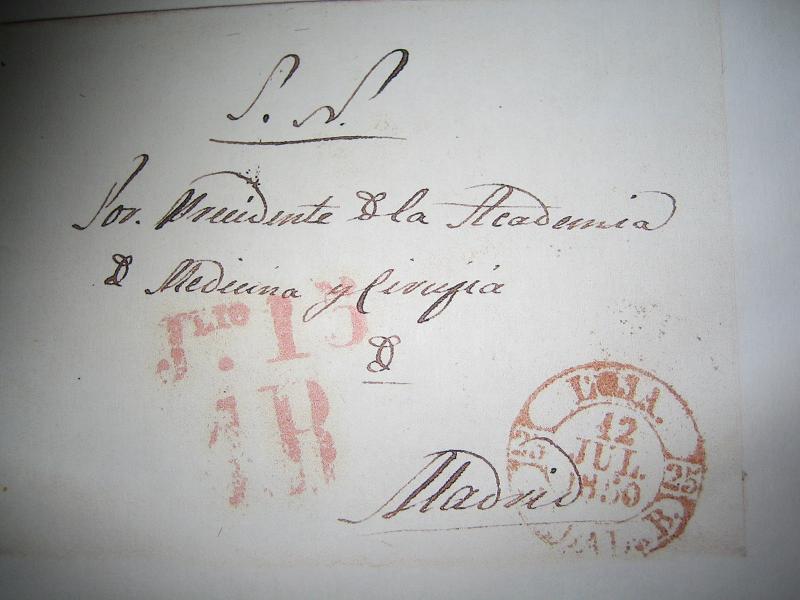 S. N.
Sor. Precidente D la Academia
D Medicina y Cirugia
D
Madrid
JLIO. 13
1R
ECIJA.
12
JUL.
1850
25
25